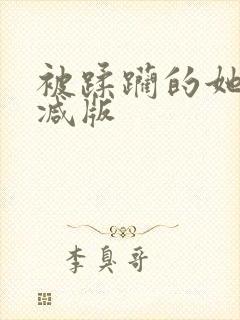 被蹂躏的她
减版
李臭哥